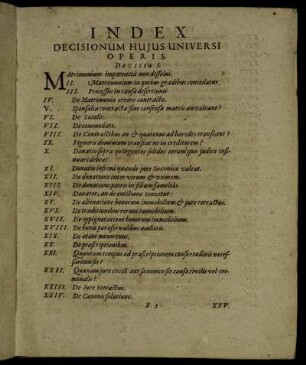 INDEX
DECISIONUM HUJUS UNIVERSI
OPERIS.
DECISIO I.
Matrimonium impotentiâ non dissolvi.
II. Matrimonium in quibus gradibus concedatur.
III. Processus in causa desertionis
IV. De Matrimonio errore contracto.
V. Sponsalia contracta sine consensu matris an valeant?
VI. De
VII. De commodato.
VIII. De Contractibus an & quatenus ad haeredes transeant?
IX. Pignoris dominium transeat ne in creditorem?
X. Donatio supra quingentos solidos coram quo judice insinuari debeat:
XI. Donatio infirmi quando jure Saxonico valeat.
XII. De donatione inter virum & uxorem.
XIII. De donatione patris in filium familiâs.
XIV. Donator, an de evictione teneatur?
XV. De alienatione bonorum immobilium & jure retractus.
XVI. De traditionibus rerum immobilium.
XVII. De oppignoratione bonorum immobilium.
XVIII. De bonis paraphernalibus mulieris.
XIX. De aetate minorenni.
XX. De praescriptionibus.
XXI. Quantum tempus ad praescriptionem consuetudinis necessarium sit?
XXII. Quonam jure civili aut saxonico sit causa civilis vel criminalis?
XXIII. De Jure retractus.
XXIV. De Canonis solutione.
XXV.